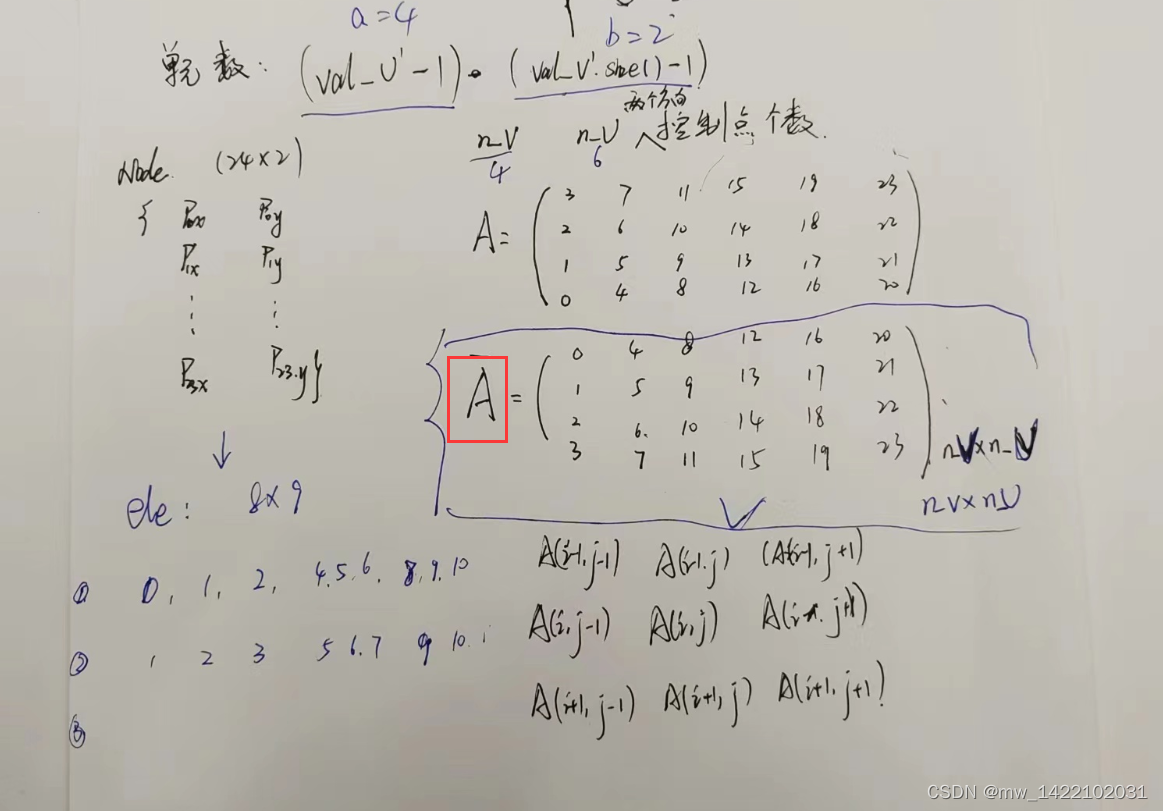 a=4
b=2
单元数: (val_U'-1)·(val_V'.size()-1)
两个方向
n_V n_U 控制点个数.
4 6
Node (24×2)
{ P0x P0y
P1x P1y
⋮ ⋮
P23x P23.y}
A= ( 3 7 11 15 19 23
2 6 10 14 18 22
1 5 9 13 17 21
0 4 8 12 16 20 )
A = ( 0 4 8 12 16 20
1 5 9 13 17 21
2 6. 10 14 18 22
3 7 11 15 19 23 ) n_V×n_U
n_V×n_U
ele: 8×9
① 0, 1, 2, 4.5.6, 8,9,10
② 1 2 3 5 6.7 9 10.
③
A(i-1,j-1) A(i-1.j) (A(i-1,j+1)
A(i,j-1) A(i,j) A(i, j+1)
A(i+1,j-1) A(i+1,j) A(i+1,j+1)
CSDN @mw_1422102031